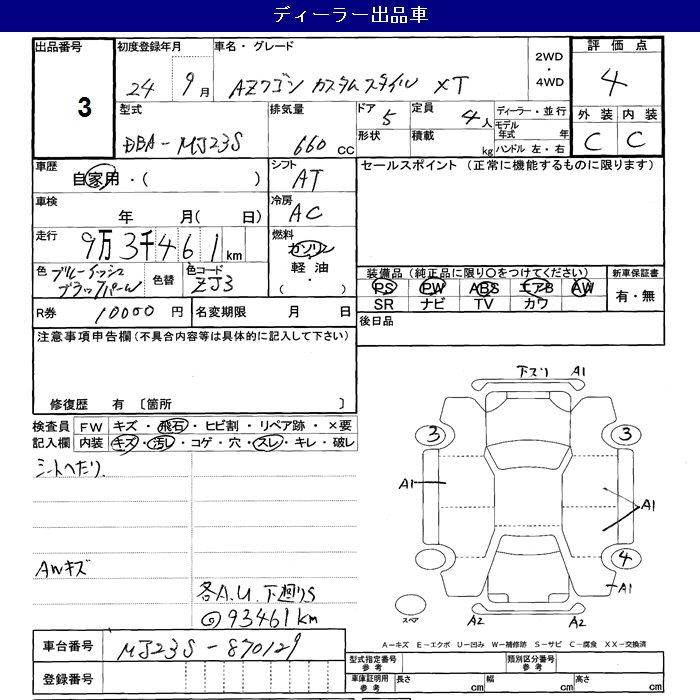 ディーラー出品車
出品番号
3
初度登録年月
24年9月
車名・グレード
AZワゴン カスタムスタイル XT
2WD
・
4WD
評価点
4
外装 内装
C C
型式
DBA-MJ23S
排気量
660cc
ドア 5
形状
定員 4人
積載 kg
ディーラー・並行
モデル年式 年
ハンドル 左・右
車歴
自家用・( )
シフト
AT
セールスポイント (正常に機能するものに限ります)
車検
年 月( 日)
冷房
AC
走行
9万3千461km
燃料
ガソリン
軽油
( ・ )
色
ブルーイッシュ
ブラックパール
色替
色コード
ZJ3
装備品 (純正品に限り○をつけてください)
PS PW ABS エアB AW
SR ナビ TV カワ
新車保証書
有・無
R券 10000円
名変期限 月 日
後日品
注意事項申告欄 (不具合内容等は具体的に記入して下さい)
修復歴 有 〔箇所 〕
検査員
記入欄
FW キズ・飛石・ヒビ割・リペア跡・×要
内装 キズ・汚レ・コゲ・穴・スレ・キレ・破レ
シートへたり
AWキズ
各A.U.下廻りS
93461km
下ズリ A1
3 3
A1
A1
4
A1
スペア
A2 A2
A－キズ E－エクボ U－凹み W－補修跡 S－サビ C－腐食 XX－交換済
車台番号
MJ23S-870129
登録番号
型式指定番号
参考
類別区分番号
参考
車庫証明用
参考
長さ cm
幅 cm
高さ cm